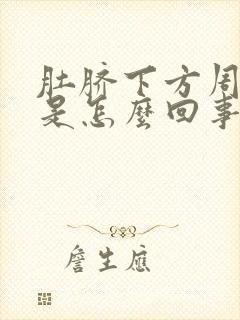 肚脐下方周
是怎麼回事
詹生應